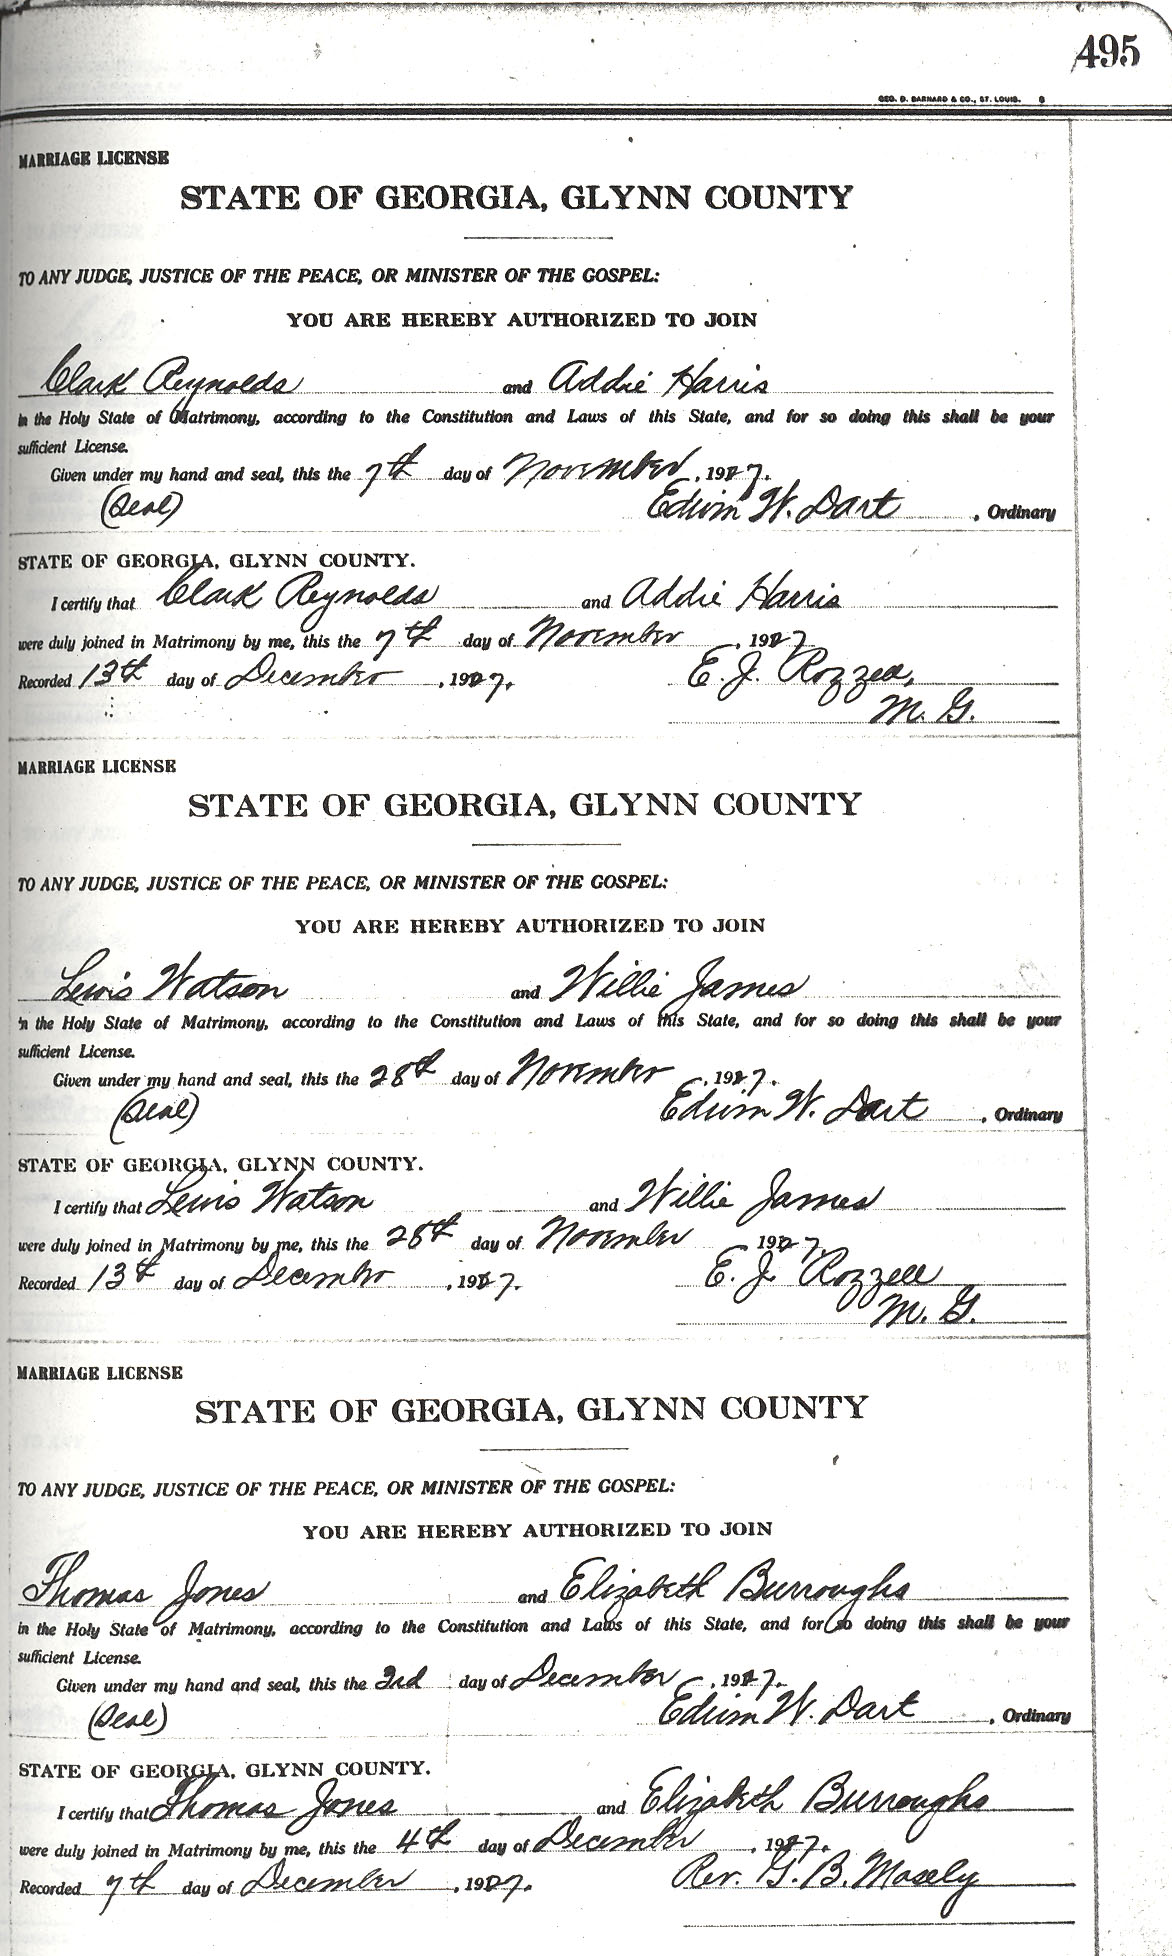 495
GEO. D. BARNARD & CO., ST. LOUIS.
MARRIAGE LICENSE
STATE OF GEORGIA, GLYNN COUNTY
TO ANY JUDGE, JUSTICE OF THE PEACE, OR MINISTER OF THE GOSPEL:
YOU ARE HEREBY AUTHORIZED TO JOIN
Clark Reynolds and Addie Harris
in the Holy State of Matrimony, according to the Constitution and Laws of this State, and for so doing this shall be your
sufficient License.
Given under my hand and seal, this the 7th day of November, 1927.
(Seal) Edwin W. Dart, Ordinary
STATE OF GEORGIA, GLYNN COUNTY.
I certify that Clark Reynolds and Addie Harris
were duly joined in Matrimony by me, this the 7th day of November, 1927
Recorded 13th day of December, 1927. E. J. Rozzell,
M. G.
MARRIAGE LICENSE
STATE OF GEORGIA, GLYNN COUNTY
TO ANY JUDGE, JUSTICE OF THE PEACE, OR MINISTER OF THE GOSPEL:
YOU ARE HEREBY AUTHORIZED TO JOIN
Lewis Watson and Willie James
in the Holy State of Matrimony, according to the Constitution and Laws of this State, and for so doing this shall be your
sufficient License.
Given under my hand and seal, this the 28th day of November, 1927.
(Seal) Edwin W. Dart, Ordinary
STATE OF GEORGIA, GLYNN COUNTY.
I certify that Lewis Watson and Willie James
were duly joined in Matrimony by me, this the 28th day of November, 1927.
Recorded 13th day of December, 1927. E. J. Rozzell
M. G.
MARRIAGE LICENSE
STATE OF GEORGIA, GLYNN COUNTY
TO ANY JUDGE, JUSTICE OF THE PEACE, OR MINISTER OF THE GOSPEL:
YOU ARE HEREBY AUTHORIZED TO JOIN
Thomas Jones and Elizabeth Burroughs
in the Holy State of Matrimony, according to the Constitution and Laws of this State, and for so doing this shall be your
sufficient License.
Given under my hand and seal, this the 3rd day of December, 1927.
(Seal) Edwin W. Dart, Ordinary
STATE OF GEORGIA, GLYNN COUNTY.
I certify that Thomas Jones and Elizabeth Burroughs
were duly joined in Matrimony by me, this the 4th day of December, 1927.
Recorded 7th day of December, 1927. Rev. G. B. Mosely